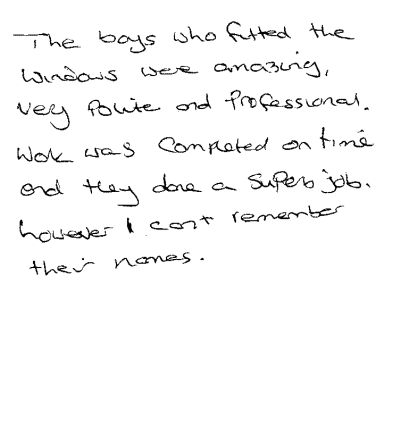 The boys who fitted the
windows were amazing,
very polite and professional.
Work was completed on time
and they done a superb job.
however I cant remember
their names.